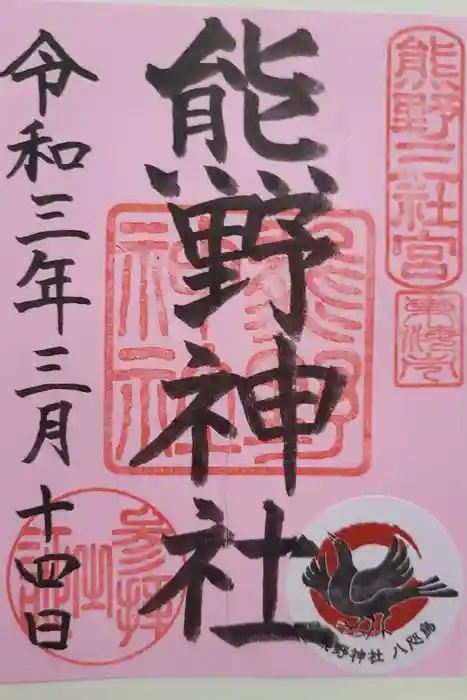 熊野三社宮
熊野神社
熊野
神社
令和三年三月十四日
参拝
熊野神社 八咫烏